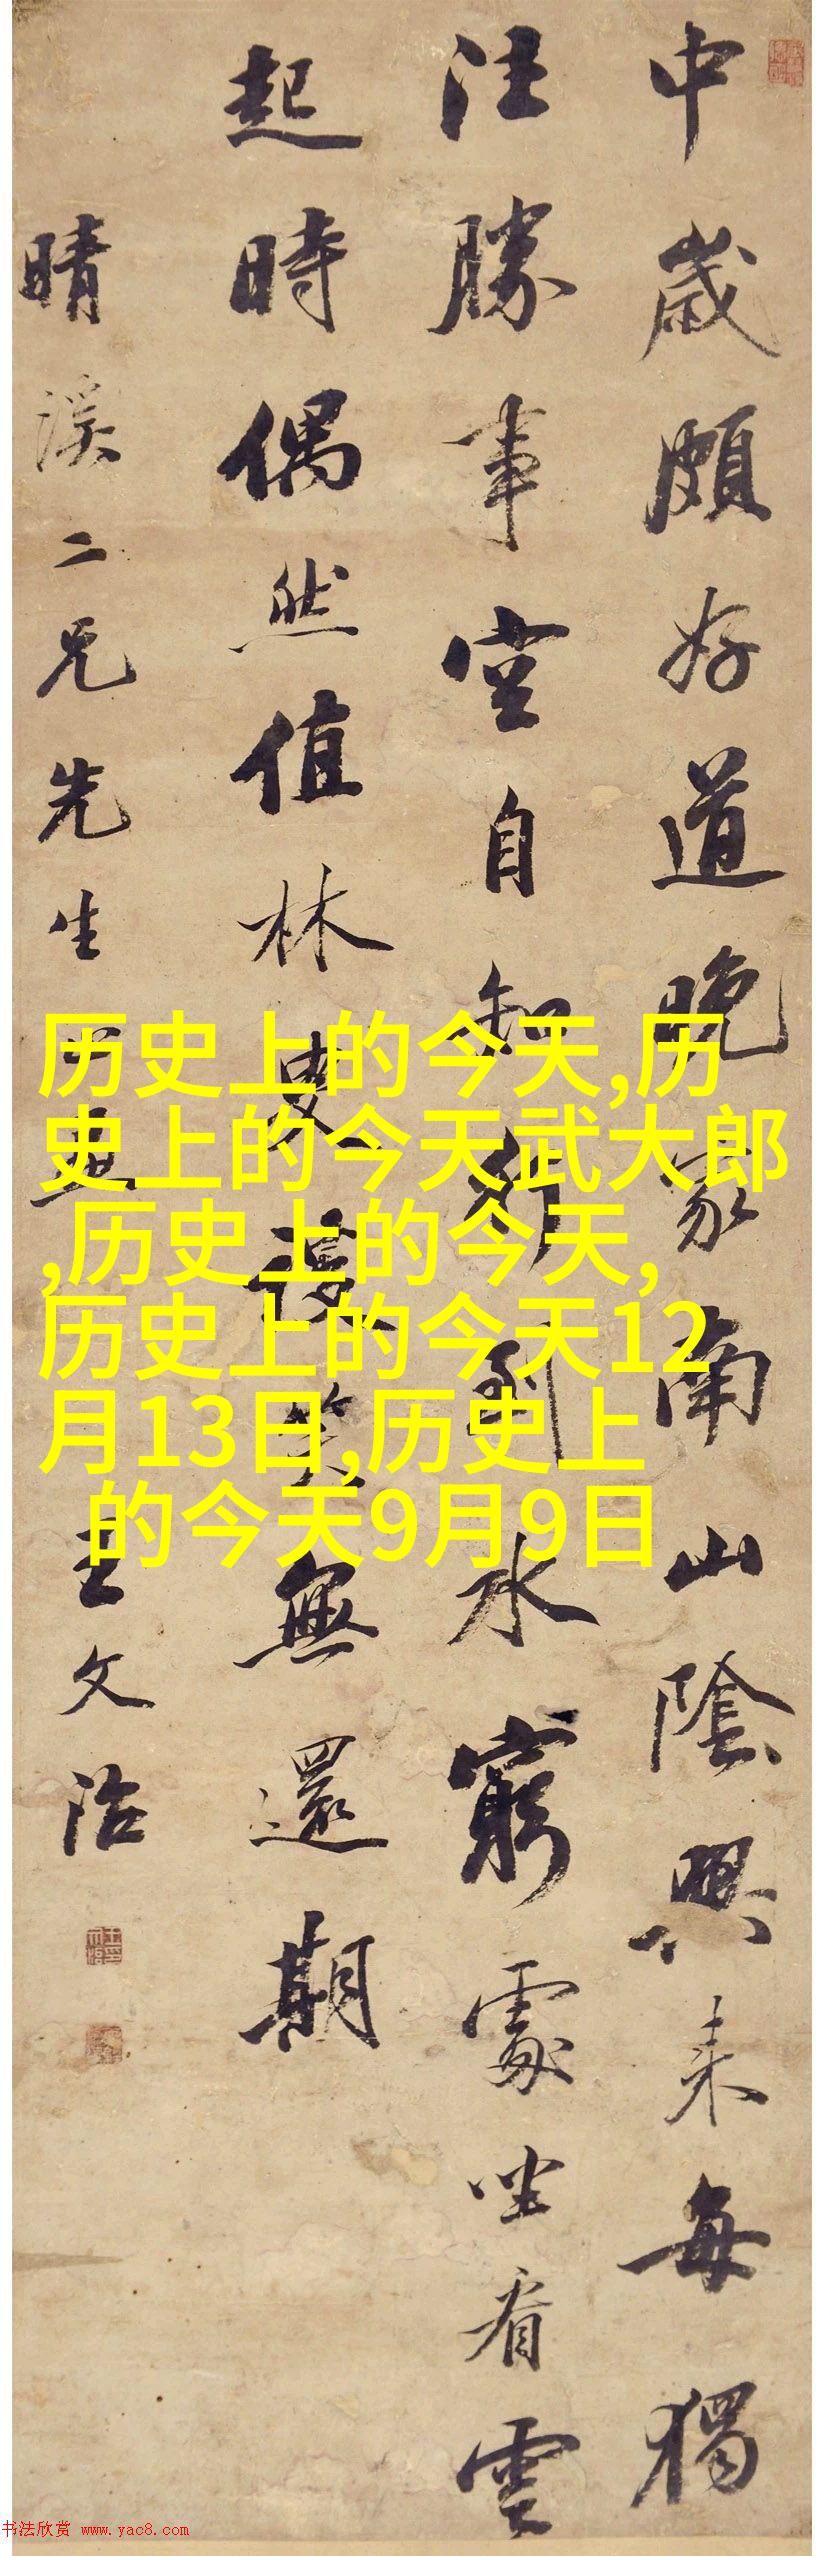 中歲頗好道晚家南山陰興來每獨
往勝事空自知行到水窮處坐看雲
起時偶然值林叟談笑無還期
晴溪二兄先生
王文治
历史上的今天,历
史上的今天武大郎
,历史上的今天,
历史上的今天12
月13日,历史上
的今天9月9日
书法欣赏 www.yac8.com